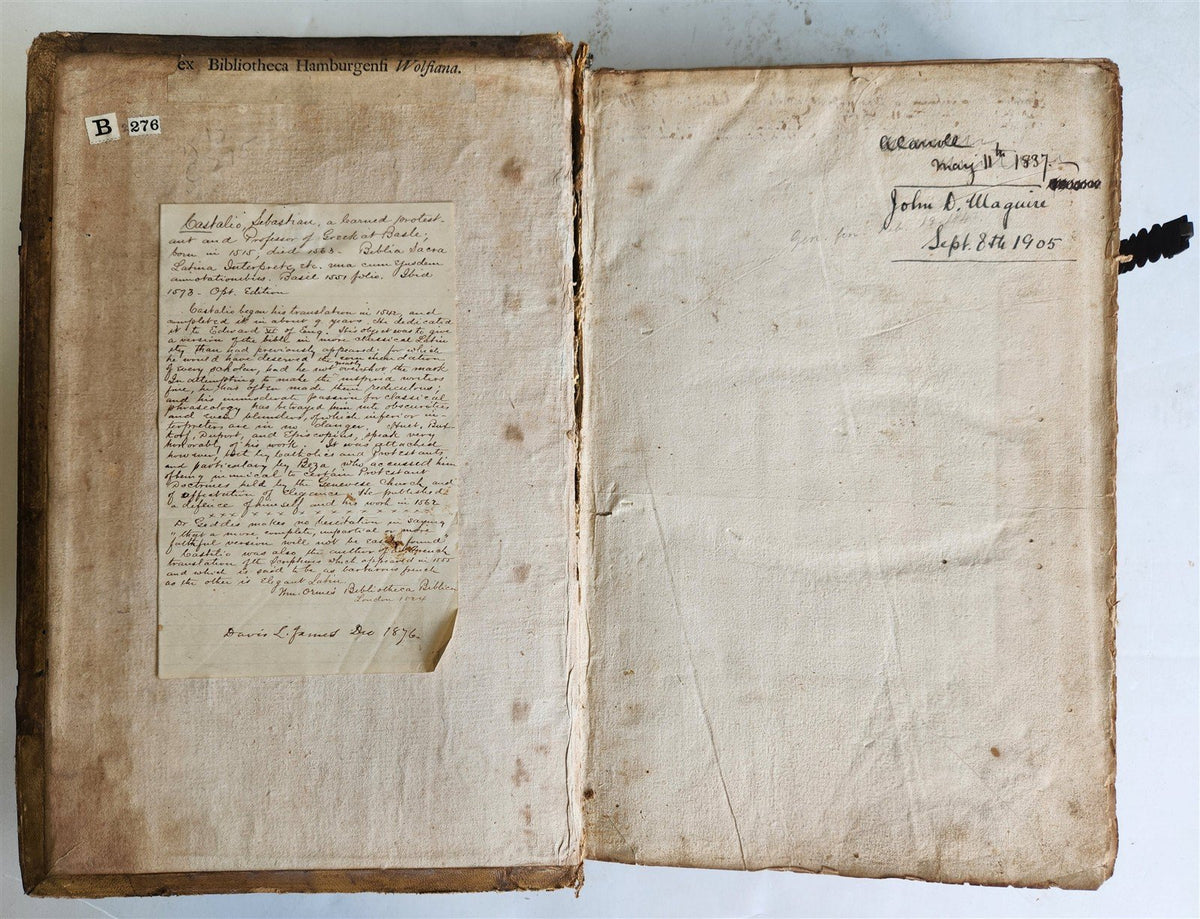 ex Bibliotheca Hamburgensi Wolfiana.
B 276
Castalio, Sebastian, a learned protest-
ant and Professor of Greek at Basle;
born in 1515, died 1563. Biblia Sacra
Latina Interprete, etc. una cum ejusdem
annotationibus. Basil 1551 folio. Ibid
1573 - Opt. Edition
Castalio began his translation in 1542, and
completed it in about 9 years. He dedicated
it to Edward VI of Eng. His object was to give
a version of the bible in more classical Latin
than had previously appeared; for which
he would have deserved the commendation
of every scholar, had he not overshot the mark
In attempting to make the inspired writers
fine, he has often made them rediculous;
and his immoderate passion for classical
phraseology has betrayed him into obscurities
and even blunders, of which inferior in-
terpreters are in no danger. Huet, Bux-
torf, Duport, and Episcopius, speak very
honorably of his work. It was attacked
however, both by Catholics and Protestants,
and particulary by Beza, who accused him
of being inimical to certain Protestant
Doctrines held by the Genevese Church, and
of affectation of Elegance. He published
a defence of himself and his work in 1562
x x x x x x x x x x x
Dr Geddes makes no hesitation in saying
"that a more complete, impartial or more
faithful version will not be easily found"
Castalio was also the author of a French
translation of the Scriptures which appeared in 1555
and which is said to be as barbarous french
as the other is Elegant Latin
Wm. Orme's Bibliotheca Biblica
London 1824
Davis L. James Dec 1876.
May 11th 1837.
John D. Maguire
Sept. 8th 1905